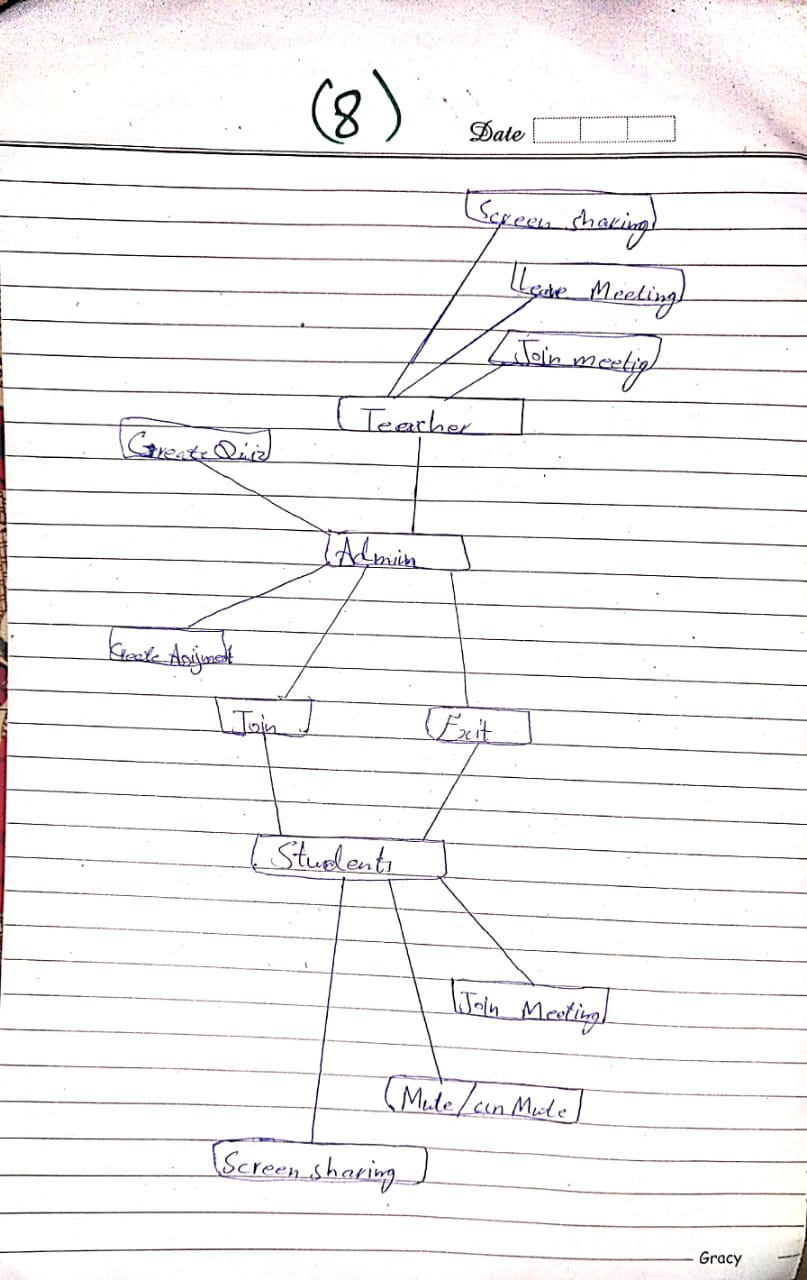 (8)
Date
Screen sharing
Leave Meeting
Join meetig
Teacher
Create Quiz
Admin
Create Asijment
Join
Exit
Students
Join Meeting
Mute/un Mute
Screen sharing
Gracy